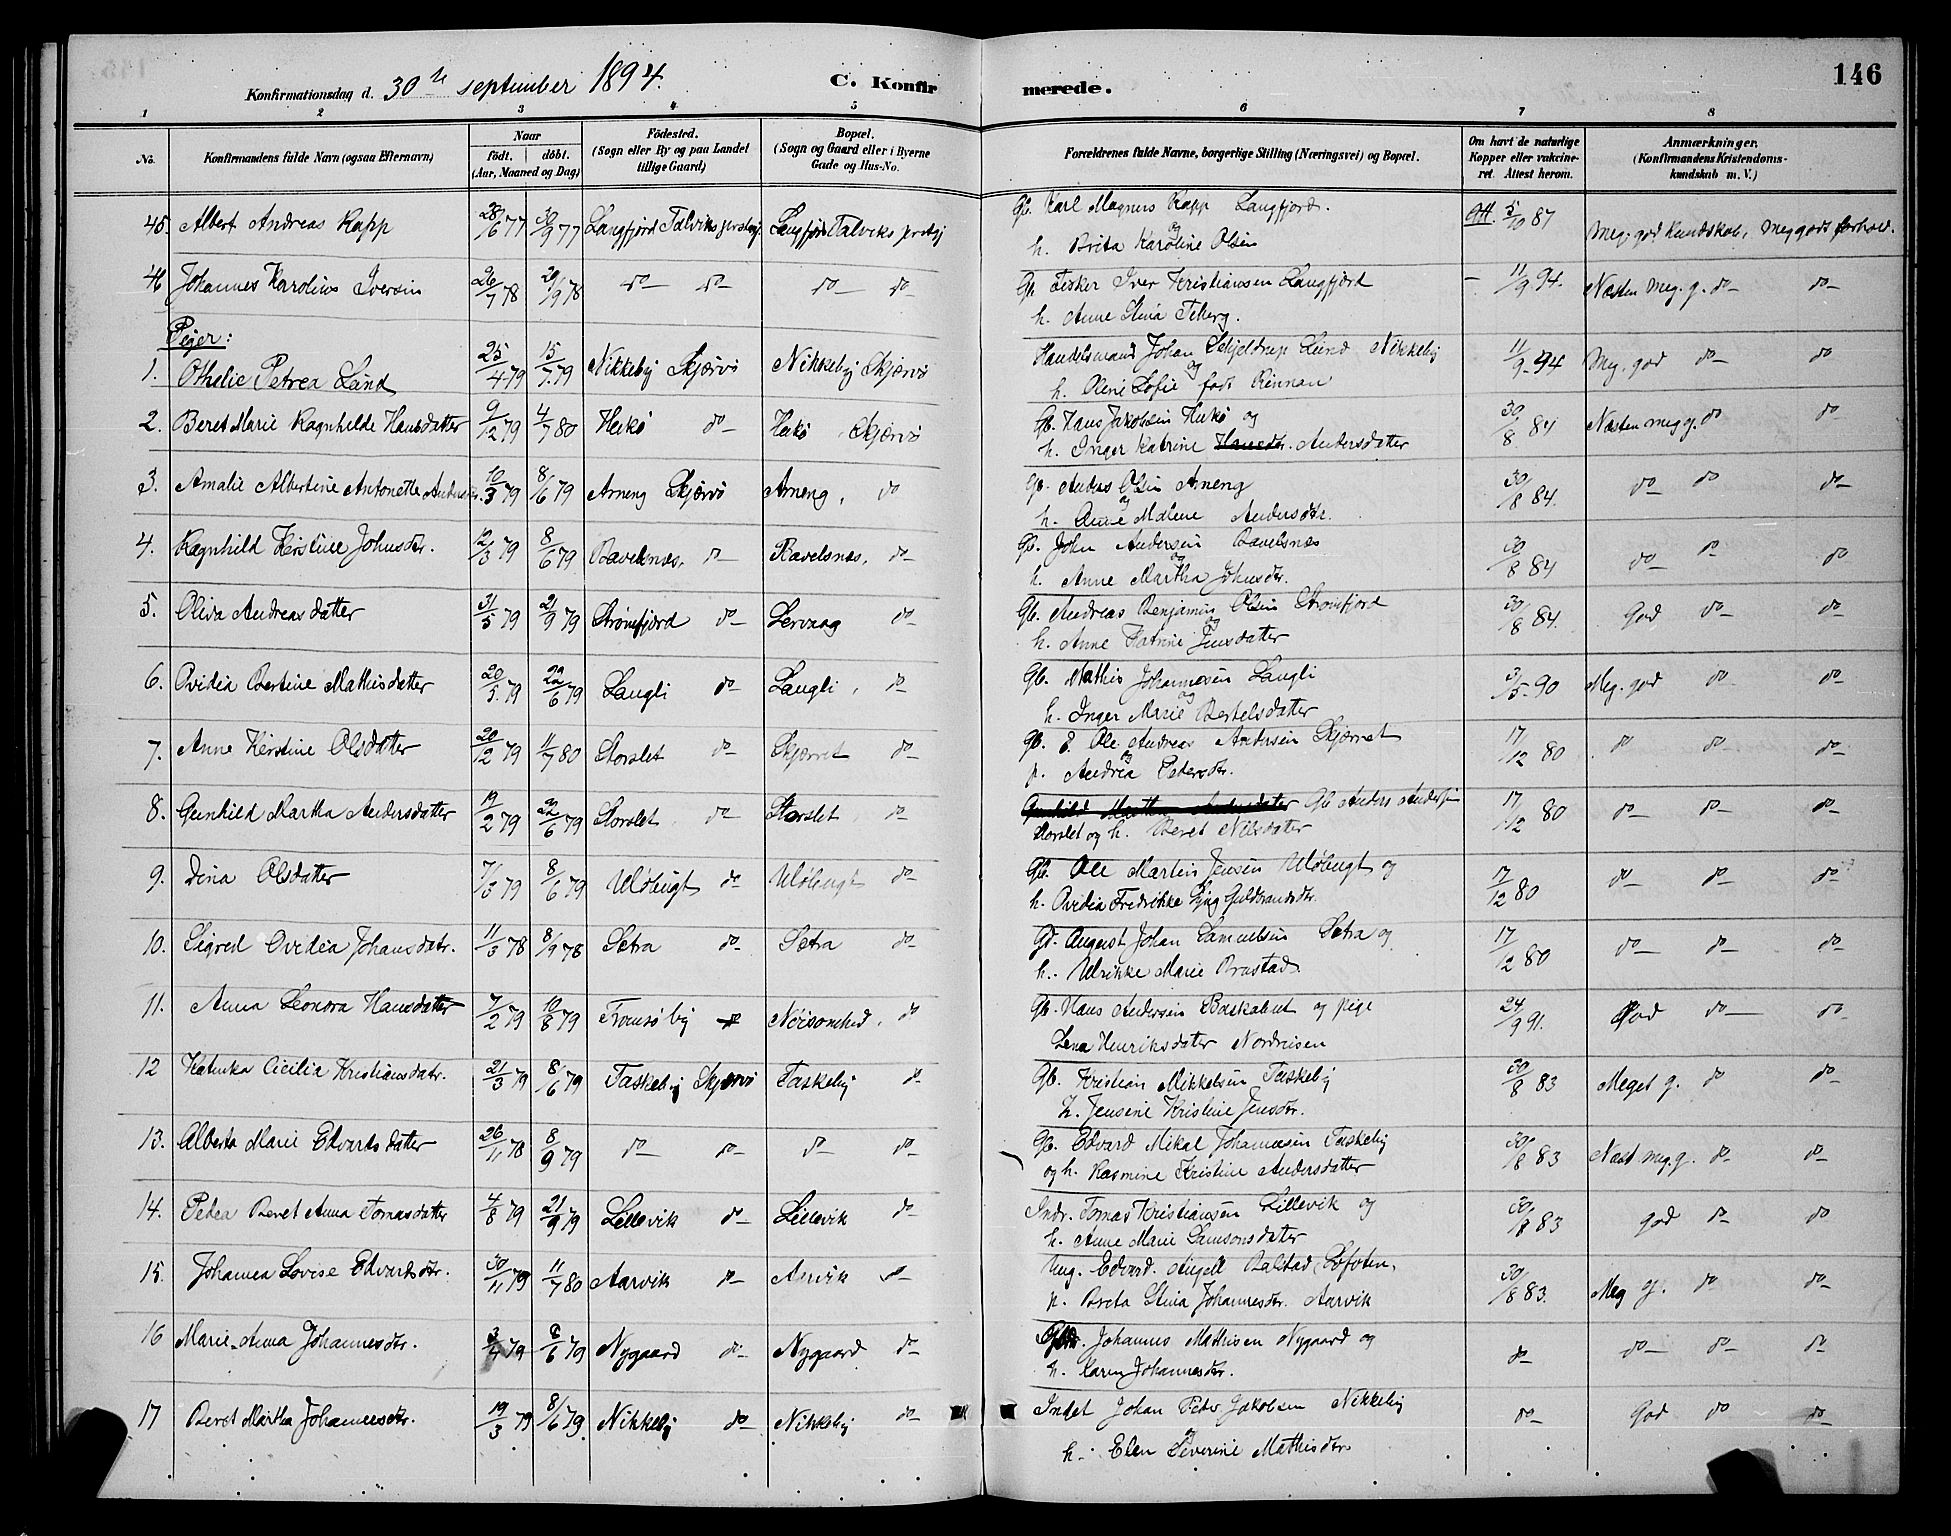 146
Konfirmationsdag d. 30te september 1894. C. Konfirmerede.
1 2 3 4 5 6 7 8
No. Konfirmandens fulde Navn (ogsaa Efternavn) Naar födt. döbt. (Aar, Maaned og Dag) Födested. (Sogn eller By og paa Landet tillige Gaard) Bopæl. (Sogn og Gaard eller i Byerne Gade og Hus-No. Forældrenes fulde Navne, borgerlige Stilling (Næringsvei) og Bopæl. Om havt de naturlige Kopper eller vakcineret. Attest herom. Anmærkninger. (Konfirmandens Kristendomskundskab m. V.)
45. Albert Andreas Rapp 28/6 77 30/9 77 Langfjord Talviks prstgj Langfjord Talviks prstgj Gb. Karl Magnus Rapp Langfjord. Att. 5/10 87 Meg. god Kundskab, meg gods forhold.
og
h. Brita Karoline Olsen
46 Johannes Karolius Iversen 26/7 78 29/9 78 do do do do Gb. Fisker Iver Kristiansen Langfjord – 11/9 94. Næsten meg. g. do do
h. Anne Stina
Piger:
1. Othelie Petrea Lund 25/4 79 15/7 79 Nikkeby Skjærvö Nikkeby Skjærvö Handelsmand Johan Schjeldrup Lund Nikkeby 11/9 94 Meg. god do do
og
h. Oline Sofie född Rönnau
2. Beret Marie Ragnhilde Hansdatter 9/12 79 4/7 80 Hukö do Hukö Skjærvö Gb. Hans Jakobsen Hukö og 30/8 84 Næsten meg g. do do
h. Inger Katrine Hansdtr. Andersdatter
3. Amalie Albertine Antonette Andersdtr. 10/3 79 8/6 79 Arneng Skjærvö Arneng, do Gb. Anders Olsen Arneng 30/8 84. do do do
og
h. Anne Malene Andersdtr.
4. Ragnhild Kerstine Johnsdtr. 12/3 79 8/6 79 Ravelsnæs, do Ravelsnæs, do Gb. John Andersen Ravelsnæs 30/8 84 do do do
og
h. Anne Martha Johnsdtr.
5. Oliva Andreasdatter 31/5 79 21/9 79 Strömfjord do Lervaag do Gb. Andreas Benjamin Olsen Strömfjord 30/8 84. God do do
og
h. Anne Katrine Jensdatter
6. Ovidia Bertine Mathisdatter 20/5 79 22/6 79 Langli do Langli, do Gb. Mathis Johannesen Langli 3/5 90 Meg. god do do
og
h. Inger Marie Bertelsdatter
7. Anne Kerstine Olsdatter 20/12 79 11/7 80 Storslet do Skjærret do Gb. E. Ole Andreas Andersen Skjærret 17/12 80 do do do
og
p. Andrea Pedersdtr.
8. Gunhild Martha Andersdatter 19/2 79 22/6 79 Storslet do Storslet do Gunhild Martha Andersdatter Gb Anders Andersen 17/12 80 do do do
Storslet og h. Beret Nilsdatter
9. Dina Olsdatter 7/3 79 8/6 79 Ulöbugt do Ulöbugt do Gb. Ole Martin Jensen Ulöbugt og 17/12 80 do do do
h. Ovidia Fredrikke Lyng Guldbrandsdtr.
10. Sigred Ovidia Johansdatr. 11/3 78 8/9 78 Setra do Setra do Gb. August Johan Samuelsen Setra og 17/12 80 do do do
h. Ulrikke Marie Brastad
11. Anna Leonora Hansdatter 7/2 79 10/8 79 Tromsö by do do Gb. Hans Andersen Baskabut og pige 24/9 91. God do do
Lena Henriksdatter Nordreisen
12 Katinka Cicilia Kristiansdatr. 21/3 79 8/6 79 Taskeby Skjærvö Taskeby do Gb. Kristian Mikkelsen Taskeby 30/8 83 Meget g. do do
h. Jensine Kristine Jensdtr.
13. Alberta Marie Edvartsdatter 26/11 78 8/9 79 do do do do Gb. Edvard Mikal Johannesen Taskeby 30/8 83 Næst. meg. g. do do
og h. Rasmine Kristine Andersdatter
14. Pedea Beret Anna Tomasdatter 4/8 79 21/9 79 Lillevik do Lillevik do Indr. Tomas Kristiansen Lillevik og 30/8 83 God do do
h. Anne Marie Samsonsdatter
15. Johanna Lovise Edvartsdtr. 30/11 79 11/7 80 Aarvik do Arvik do Ung. Edvard Angell Balstad, Lofoten, 30/8 83. Meg g. do do
p. Brita Stina Johannesdtr. Aarvik
16 Marie Anna Johannesdtr. 3/4 79 8/6 79 Nygaard do Nygaard do Johannes Mathisen Nygaard og do do do do
h. Karen Johannesdtr.
17 Beret Martha Johannesdtr. 19/3 79 8/6 79. Nikkeby do Nikkeby do Indst Johan Peder Jakobsen Nikkeby do God do do
og
h. Elen Severine Mathisdtr